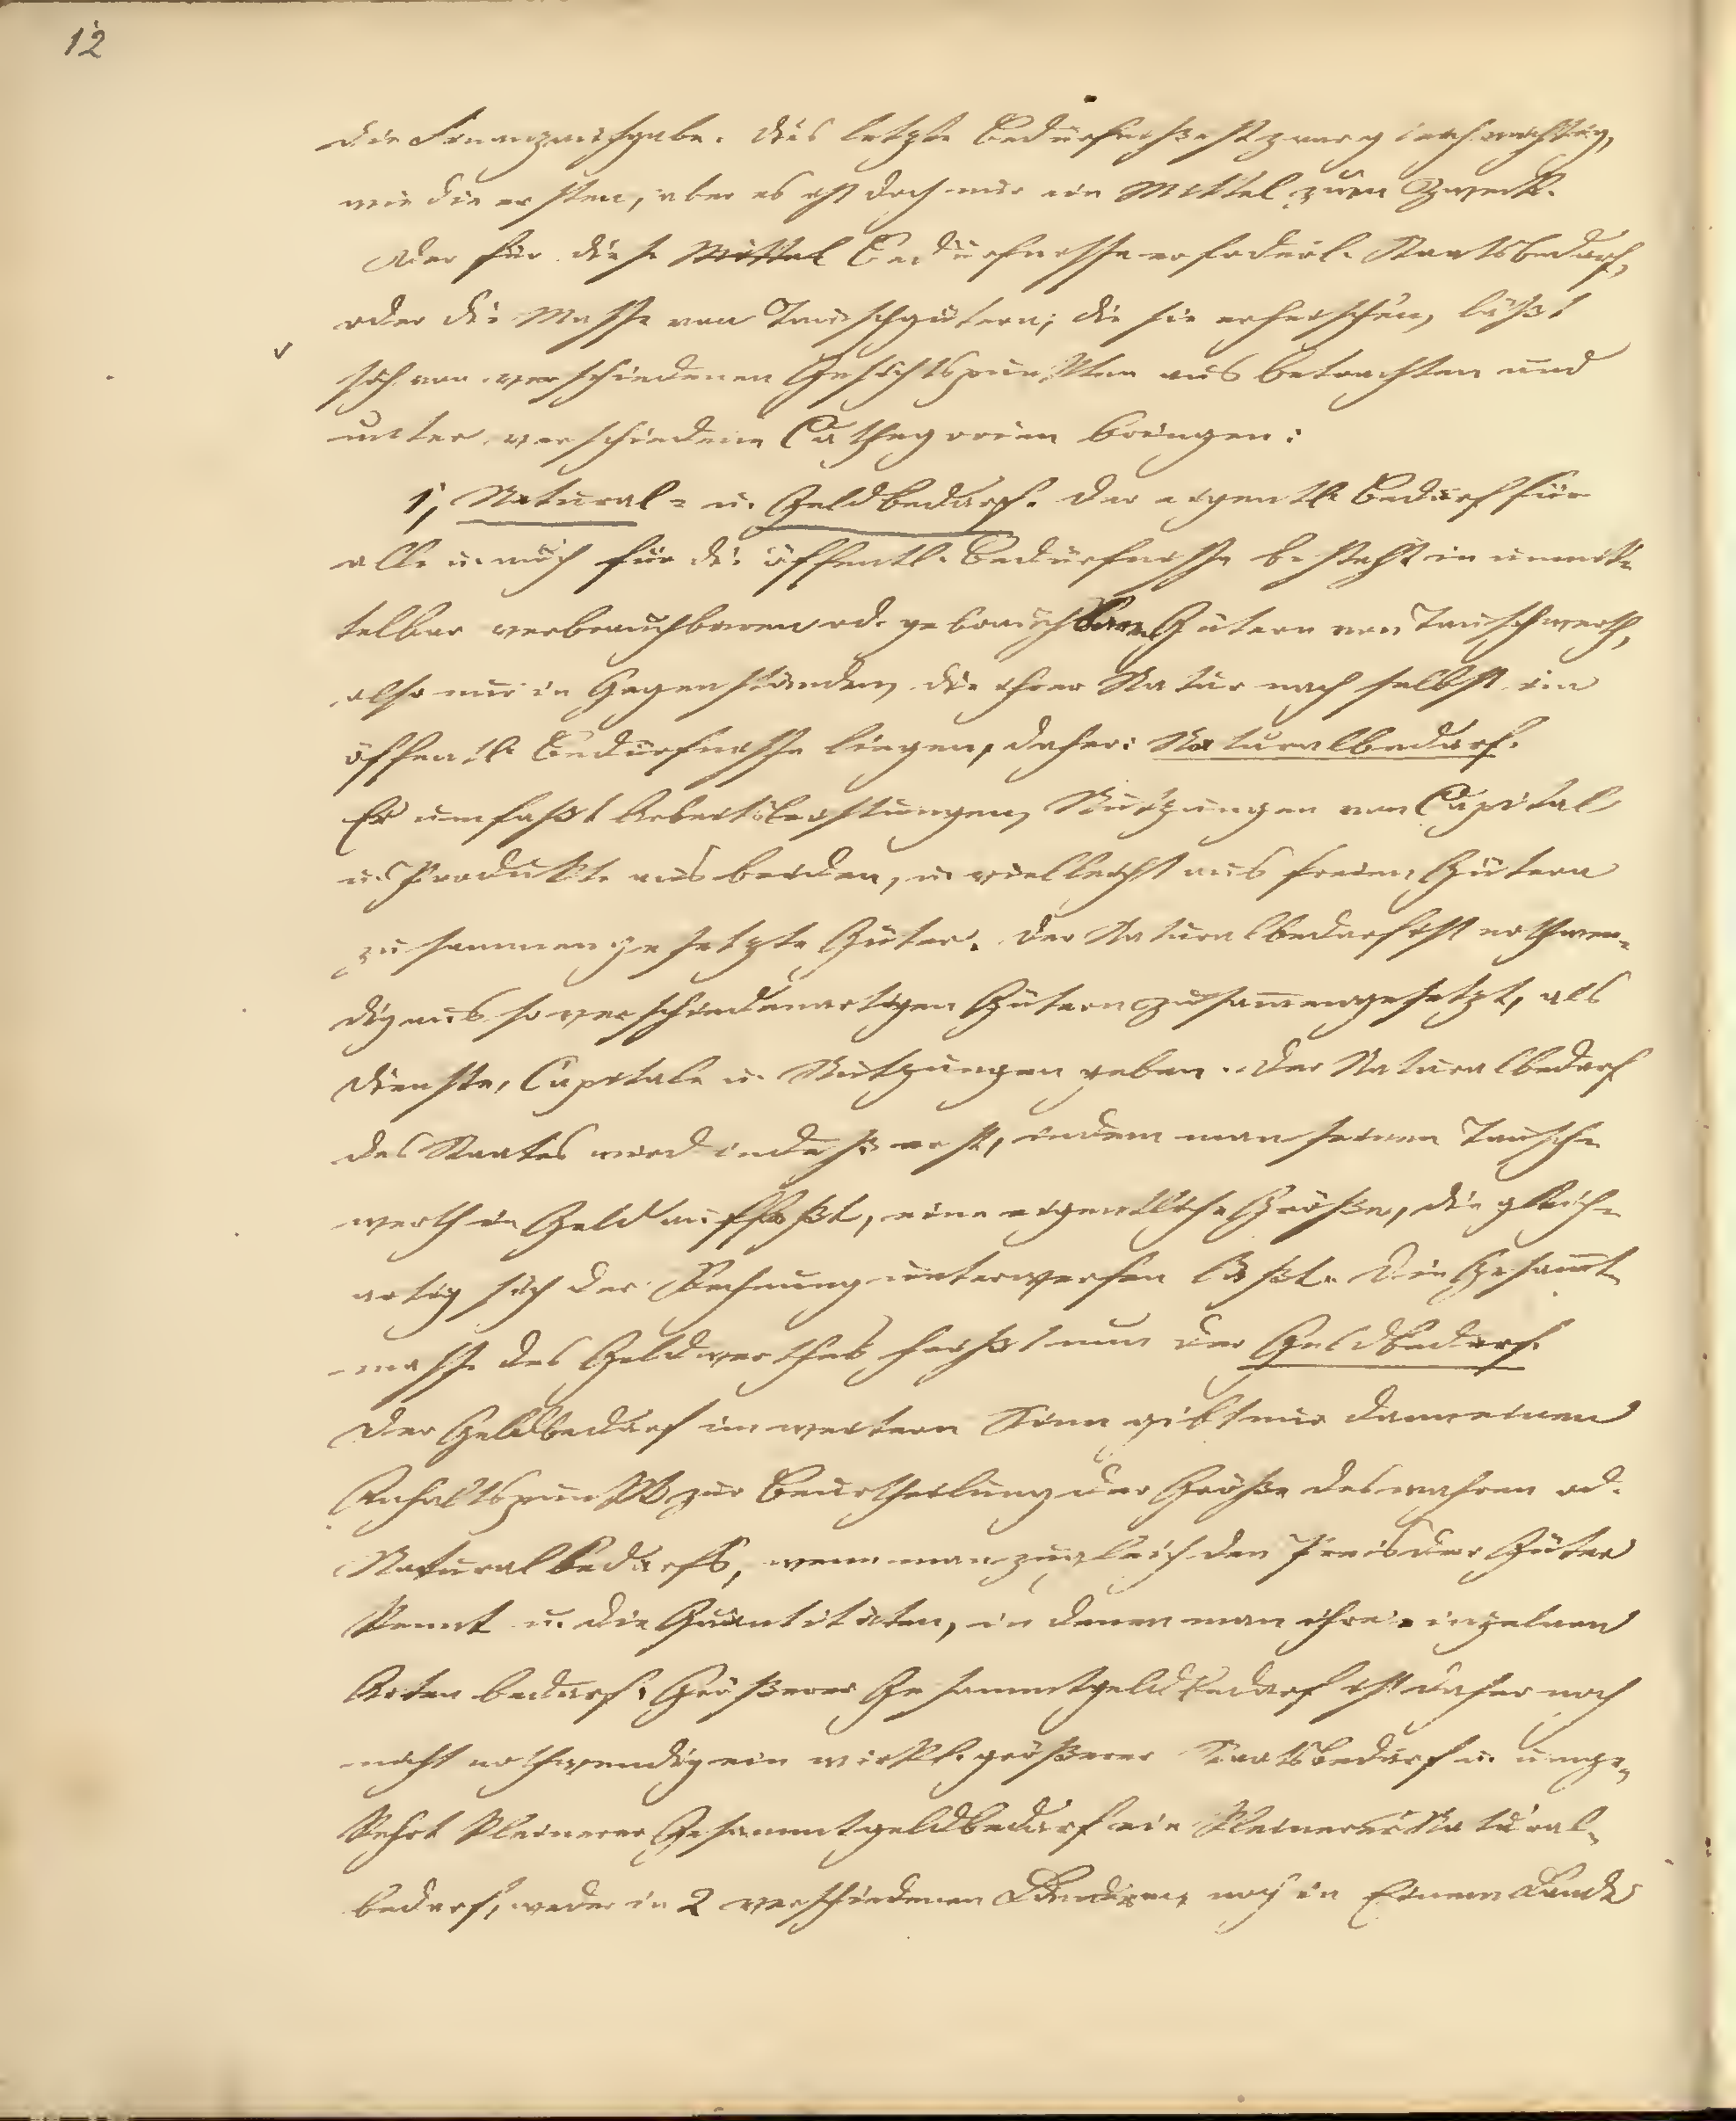 12
die Finanzaufgabe. Dies letzte Bedürfniß ist zwar gleich wichtig,
wie die ersten, aber es ist doch nur ein Mittel zum Zweck.
Der für diese Mittel Bedürfnisse erforderl. Staatsbedarf,
oder die Masse von Tauschgütern, die sie erheischen, läßt
sich von verschiedenen Gesichtspunkten aus betrachten und
unter verschiedene Cathegorien bringen:
1, Natural- u. Geldbedarf. Der eigentl. Bedarf für
alle u. auch für die öffentl. Bedürfnisse besteht in unmit-
telbar verbrauchbaren od. gebrauchbaren Gütern von Tauschwerth,
also nur in Gegenständen, die ihrer Natur nach selbst im
öffentl. Bedürfnisse liegen, daher: Naturalbedarf.
Er umfaßt Arbeitsleistungen, Nutzungen von Capital
u. Produkte aus beiden, u. vielleicht aus freien Gütern
zusammengesetzte Güter. Der Naturalbedarf ist nothwen-
dig aus so verschiedenartigen Gütern zusammengesetzt, als
Dienste, Capitale u. Nutzungen geben. Der Naturalbedarf
des Staates wird indeß erst, indem man seinen Tausch-
werth in Geld auffaßt, eine eigentliche Größe, die gleich-
artig sich der Rechnung unterwerfen läßt. Die Gesammt-
masse des Geldwerthes heißt nun der Geldbedarf.
Der Geldbedarf im weitern Sinn gibt nur dann einen
Anhaltspunkt zur Beurtheilung der Größe des wahren od.
Naturalbedarfs, wenn man zugleich den Preis der Güter
kennt u. die Quantitäten, in denen man ihre einzelnen
Arten bedarf. Größerer Gesammtgeldbedarf ist daher noch
nicht nothwendig ein wirkl. größerer Staatsbedarf u. umge-
kehrt kleinerer Gesammtgeldbedarf ein kleinerer Natural-
bedarf, weder in 2 verschiedenen Ländern, noch in Einem Lande